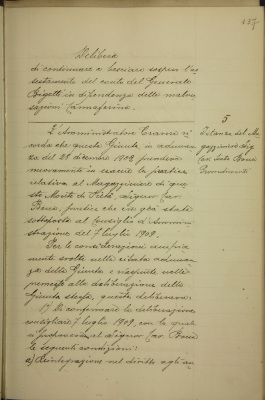 137.
Delibera
di continuare a lasciare sospeso l'in
testamento del conto del Generale
Bigetti in dipendenza delle malver
sazioni Cannaferina.
5
Istanza del Ma
gazziniere Sig.
Cav. Bene
Provvedimenti
L'Amministratore Cranni ri
corda che questa Giunta in adunan
za del 28 dicembre 1908 prendeva
nuovamente in esame la pratica
relativa al Magazziniere di que
sto Monte di Pietà, Signor Cav.
Bene, pratica che era già stata
sottoposta al Consiglio d'Ammini
strazione del 7 luglio 1908.
Per le considerazioni ampia
mente svolte nella citata adunan
za della Giunta e riassunte nelle
premesse alla deliberazione della
Giunta stessa, questa deliberava:
1) Di confermare la deliberazione
consigliare 7 luglio 1908, con la quale
si proponeva al Signor Cav. Bene
le seguenti condizioni:
a) Reintegrazione nel diritto agli au